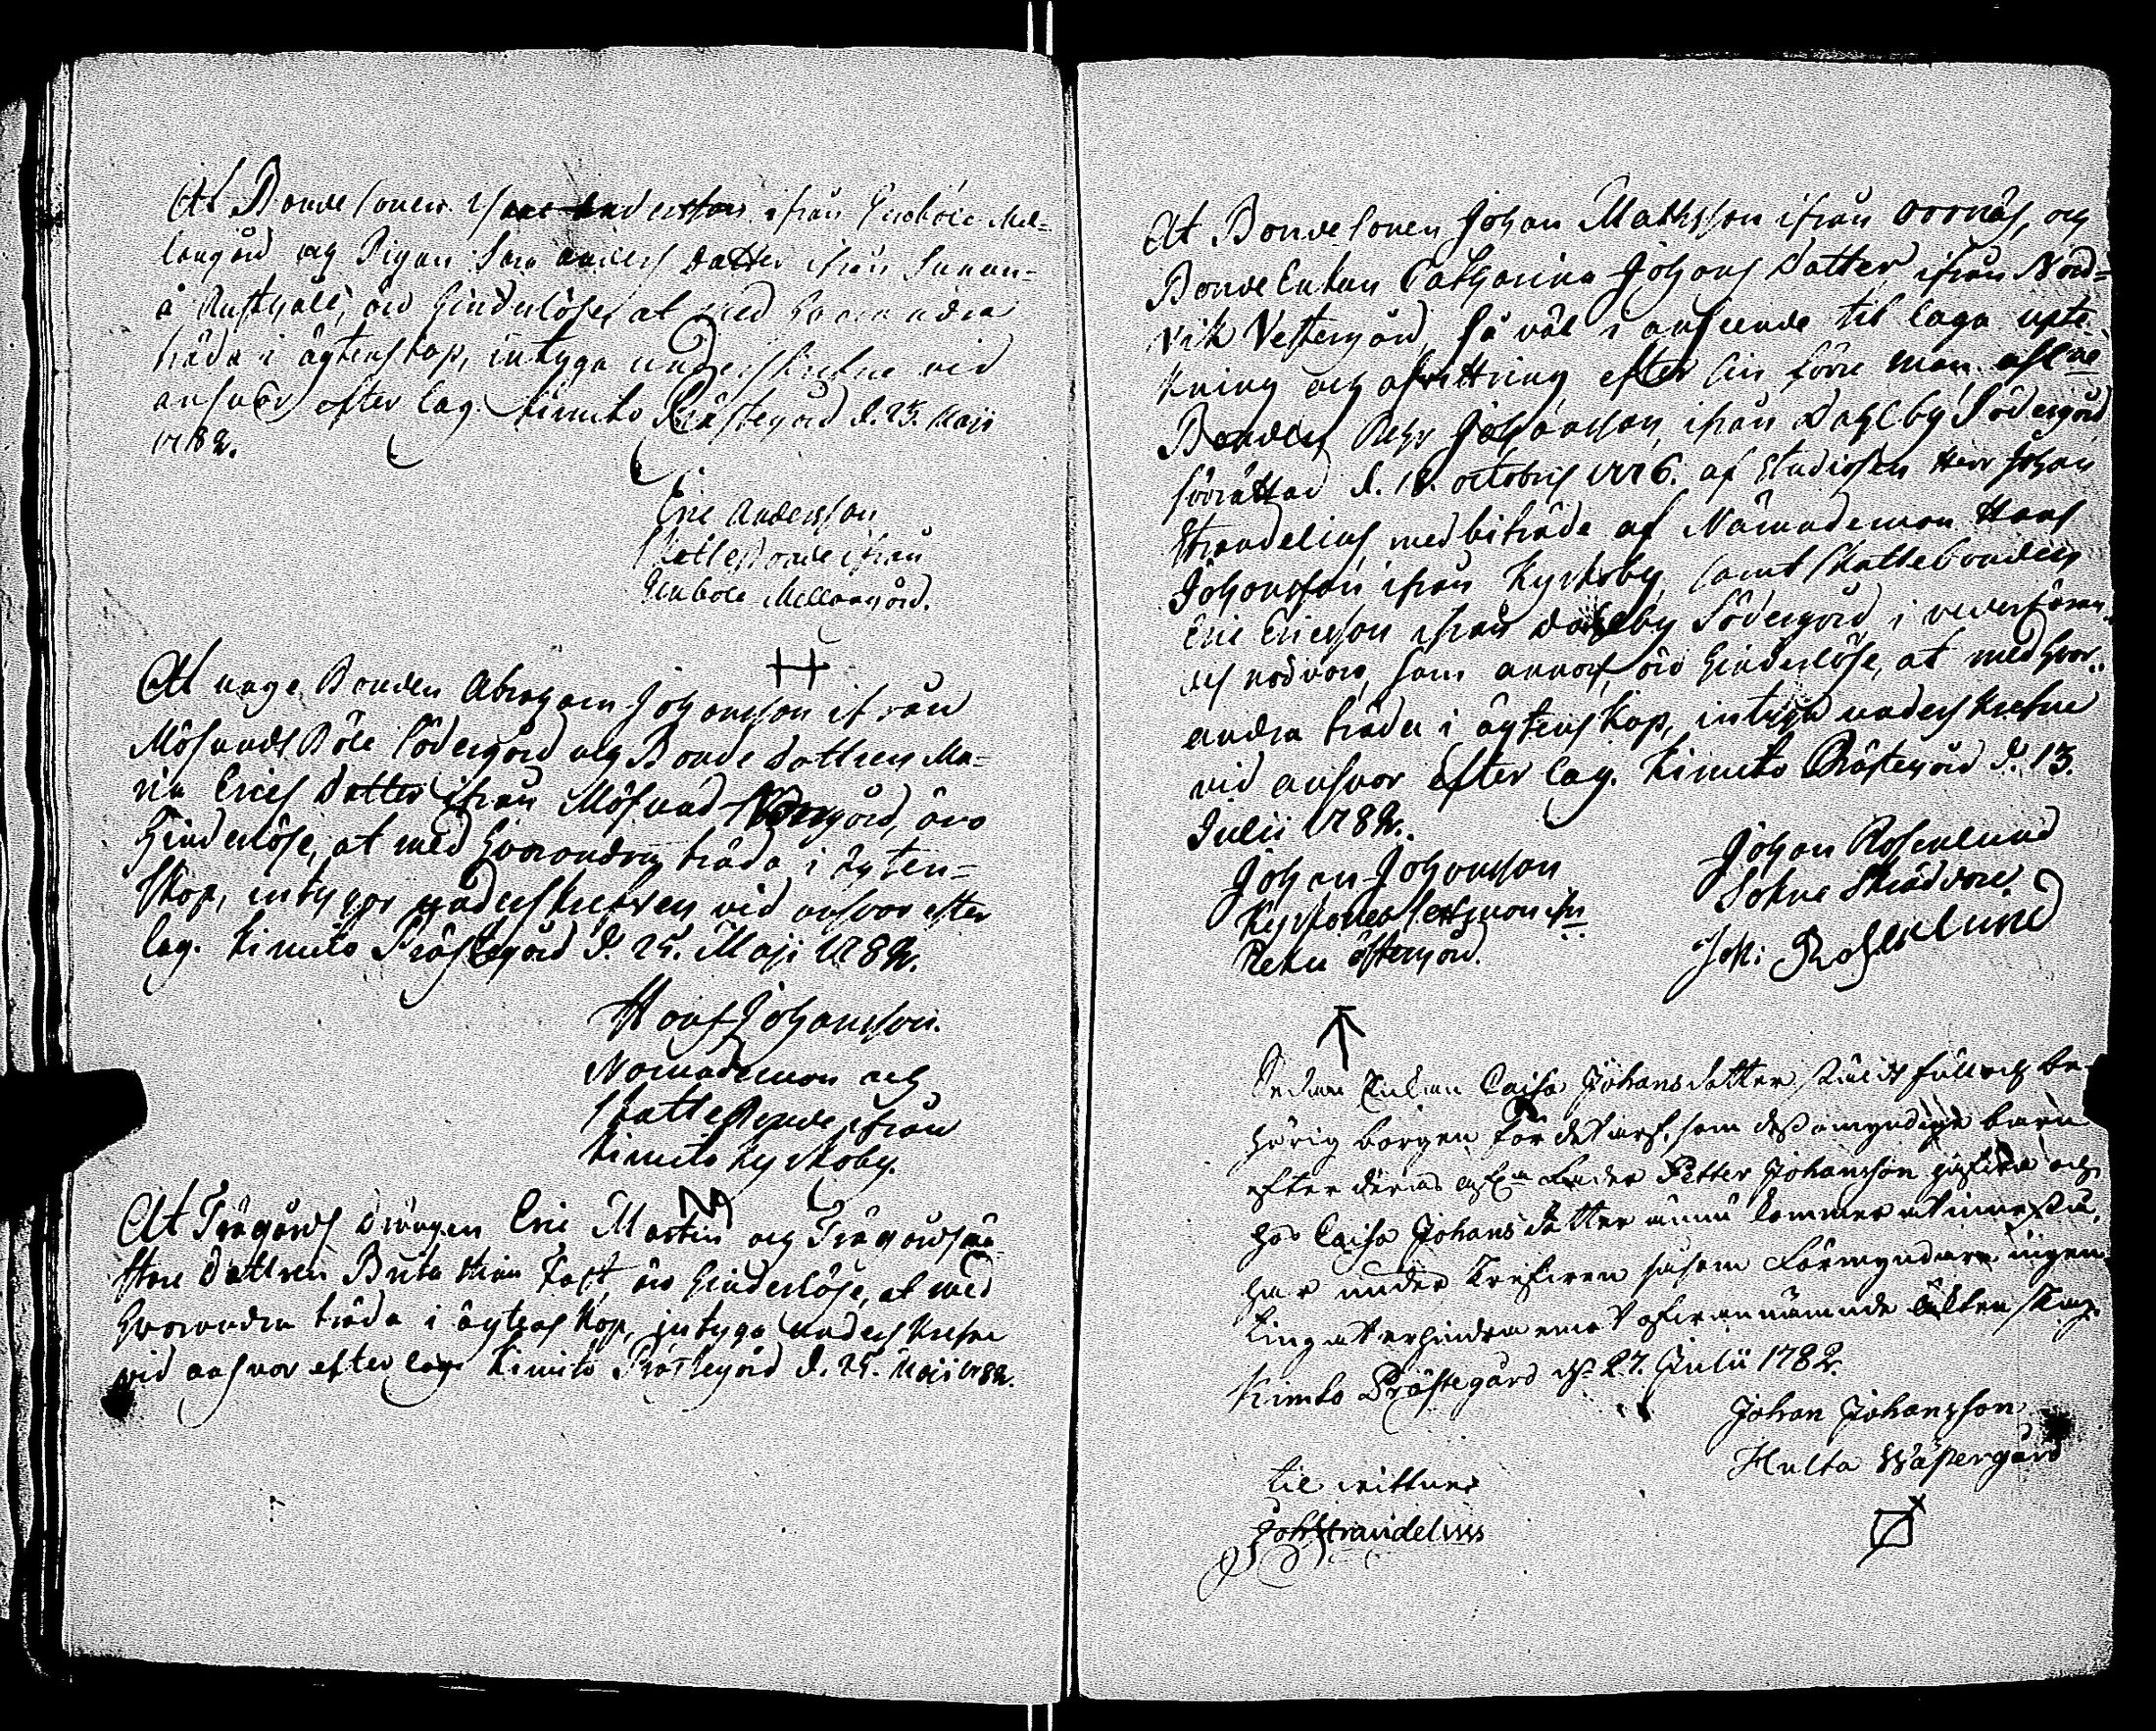 At Bondesonen Isaac Andersson ifrån Genböle Mel=
langård och Pigan Sara Anders Datter ifrån Sunnan=
å Rusthåll, äro hinderlöse, at med hvarandra
träda i ägtenskap, intyga underskrefne vid
answar efter lag. Kimito Prästegård d. 25. Maji
1782.
Eric Andersson
Skattebonde ifrån
Genböle Mellangård.
At unge Bonden Abraham Johansson ifrån
Mösundsböle Södergård och Bonde Dottren Ma=
ria Erics Datter ifrån Mösund Norrgård, äro
hinderlöse, at med hvarandra träda i ägten=
skap, intygar underskrefven vid answar efter
lag. Kimito Prästegård d. 25. Maji 1782.
Hans Johansson.
Nämndeman och
Skattebonde ifrån
Kimito Kyrkoby.
At Trägårds Drängen Eric Martin och Trägårdsmä=
stare Dottren Brita Stina Fast, äro hinderlöse, at med
hvarandra träda i ägtenskap, intyga underskrefne
vid answar efter lag. Kimito Prästegård d. 25. Maji 1782.
At Bondesonen Johan Mathsson ifrån Norrnäs, och
Bonde Enkan Catharina Johans Datter ifrån Nord=
vik Vestergård, så väl i anseende til laga upte=
kning och afvittring efter sin förre man afl:ne
Bonden Pehr Johansson ifrån Dahlby Södergård
förrättad d. 18. Octobris 1776. af Studiosen Herr Johan
Strandelius med biträde af Nämndeman Hans
Johansson ifrån Kyrkoby, samt Skattebonden
Eric Ericsson ifrån Dahlby Södergård i vederböran=
des närvaro, som annars, äro hinderlöse, at med hvar=
andra träda i ägtenskap, intyga underskrefne
vid answar efter lag. Kimito Prästegård d. 13.
Julii 1782.
Johan Johansson
Kyrkones sexman ifrn
Reku Östergård.
Johan Rosenlund
Sokne Skräddare.
Joh: Rosenlund
Sedan Enkan Caisa Johansdotter stäldt full och be=
hörig borgen för det arf, som dess omyndige barn
efter deras afl:n Fader Petter Johansson tillfalla och
hos Caisa Johansdotter ännu kommer at innestå,
har undertecknad såsom Förmyndare ingen
ting at erhindra emot ofvannämnde Enkas
Kimito Prästegård d: 27. Julii 1782.
Johan Johansson
Hulta Wästergård
til wittne
Joh Strandelius